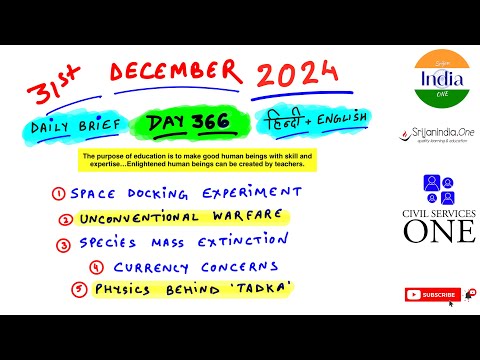 31st DECEMBER 2024
DAILY BRIEF
DAY 366
हिन्दी + ENGLISH
The purpose of education is to make good human beings with skill and
expertise...Enlightened human beings can be created by teachers.
① SPACE DOCKING EXPERIMENT
② UNCONVENTIONAL WARFARE
③ SPECIES MASS EXTINCTION
④ CURRENCY CONCERNS
⑤ PHYSICS BEHIND 'TADKA'
Srijan
India
ONE
Srijanindia.One
quality learning & education
CIVIL SERVICES
ONE
SUBSCRIBE